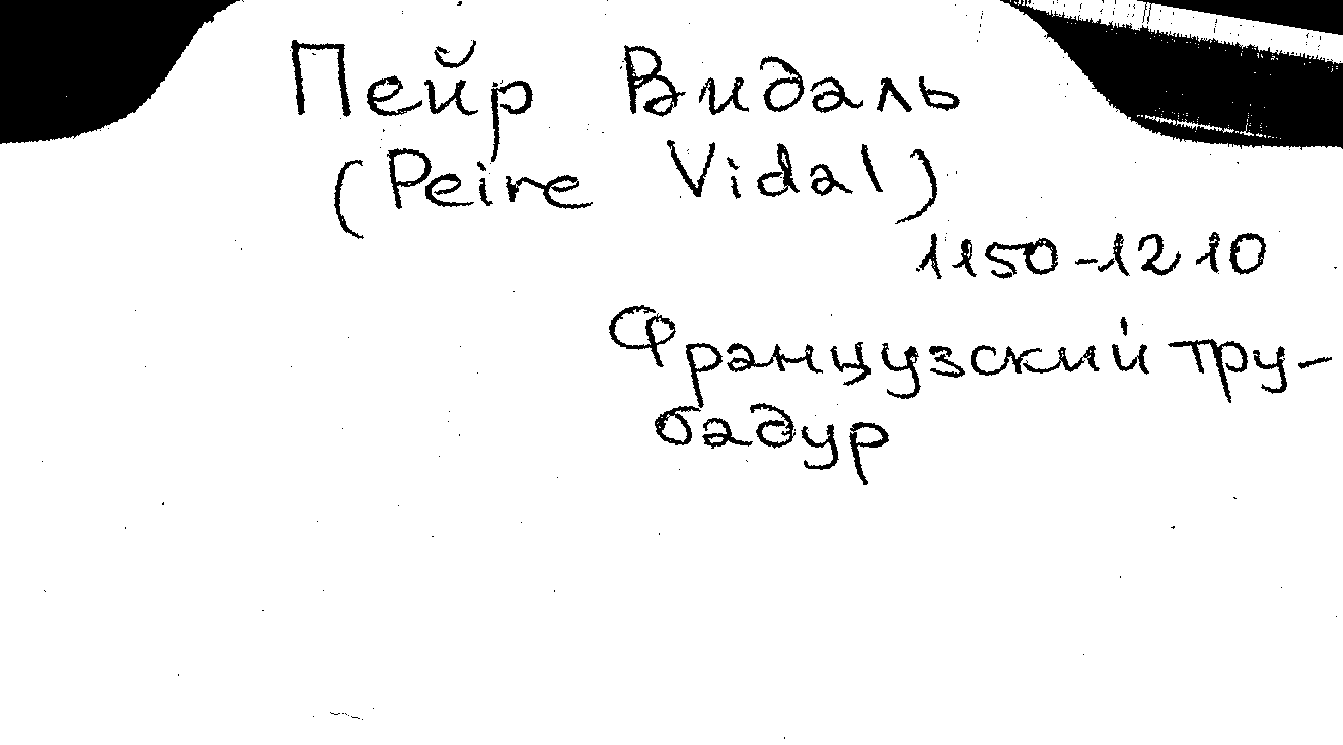 Пейр Видаль
(Peire Vidal)
1150-1210
Французский тру-
бадур